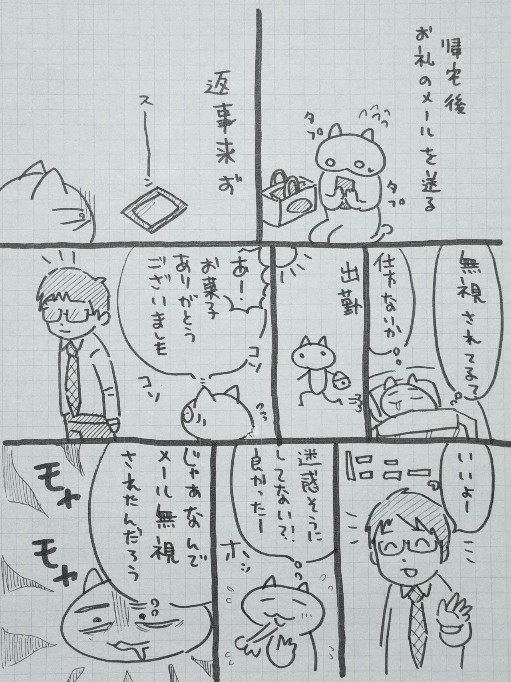 帰宅後
お礼のメールを送る
タプ
タプ
返事来ず
スー
無視されてる?
仕方ないか
出勤
あー!
お菓子
ありがとう
ございましも
コソ
コソ
いいよー
ニコニコー
迷惑そうに
してないで、
良かったー
ホッ
じゃあなんで
メール無視
されたんだろう
モヤ
モヤ